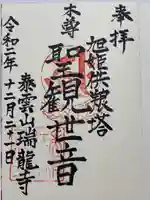 奉拝
旭姫供養塔
本尊
聖観世音
泰雲山瑞龍寺
令和二年十一月二十一日